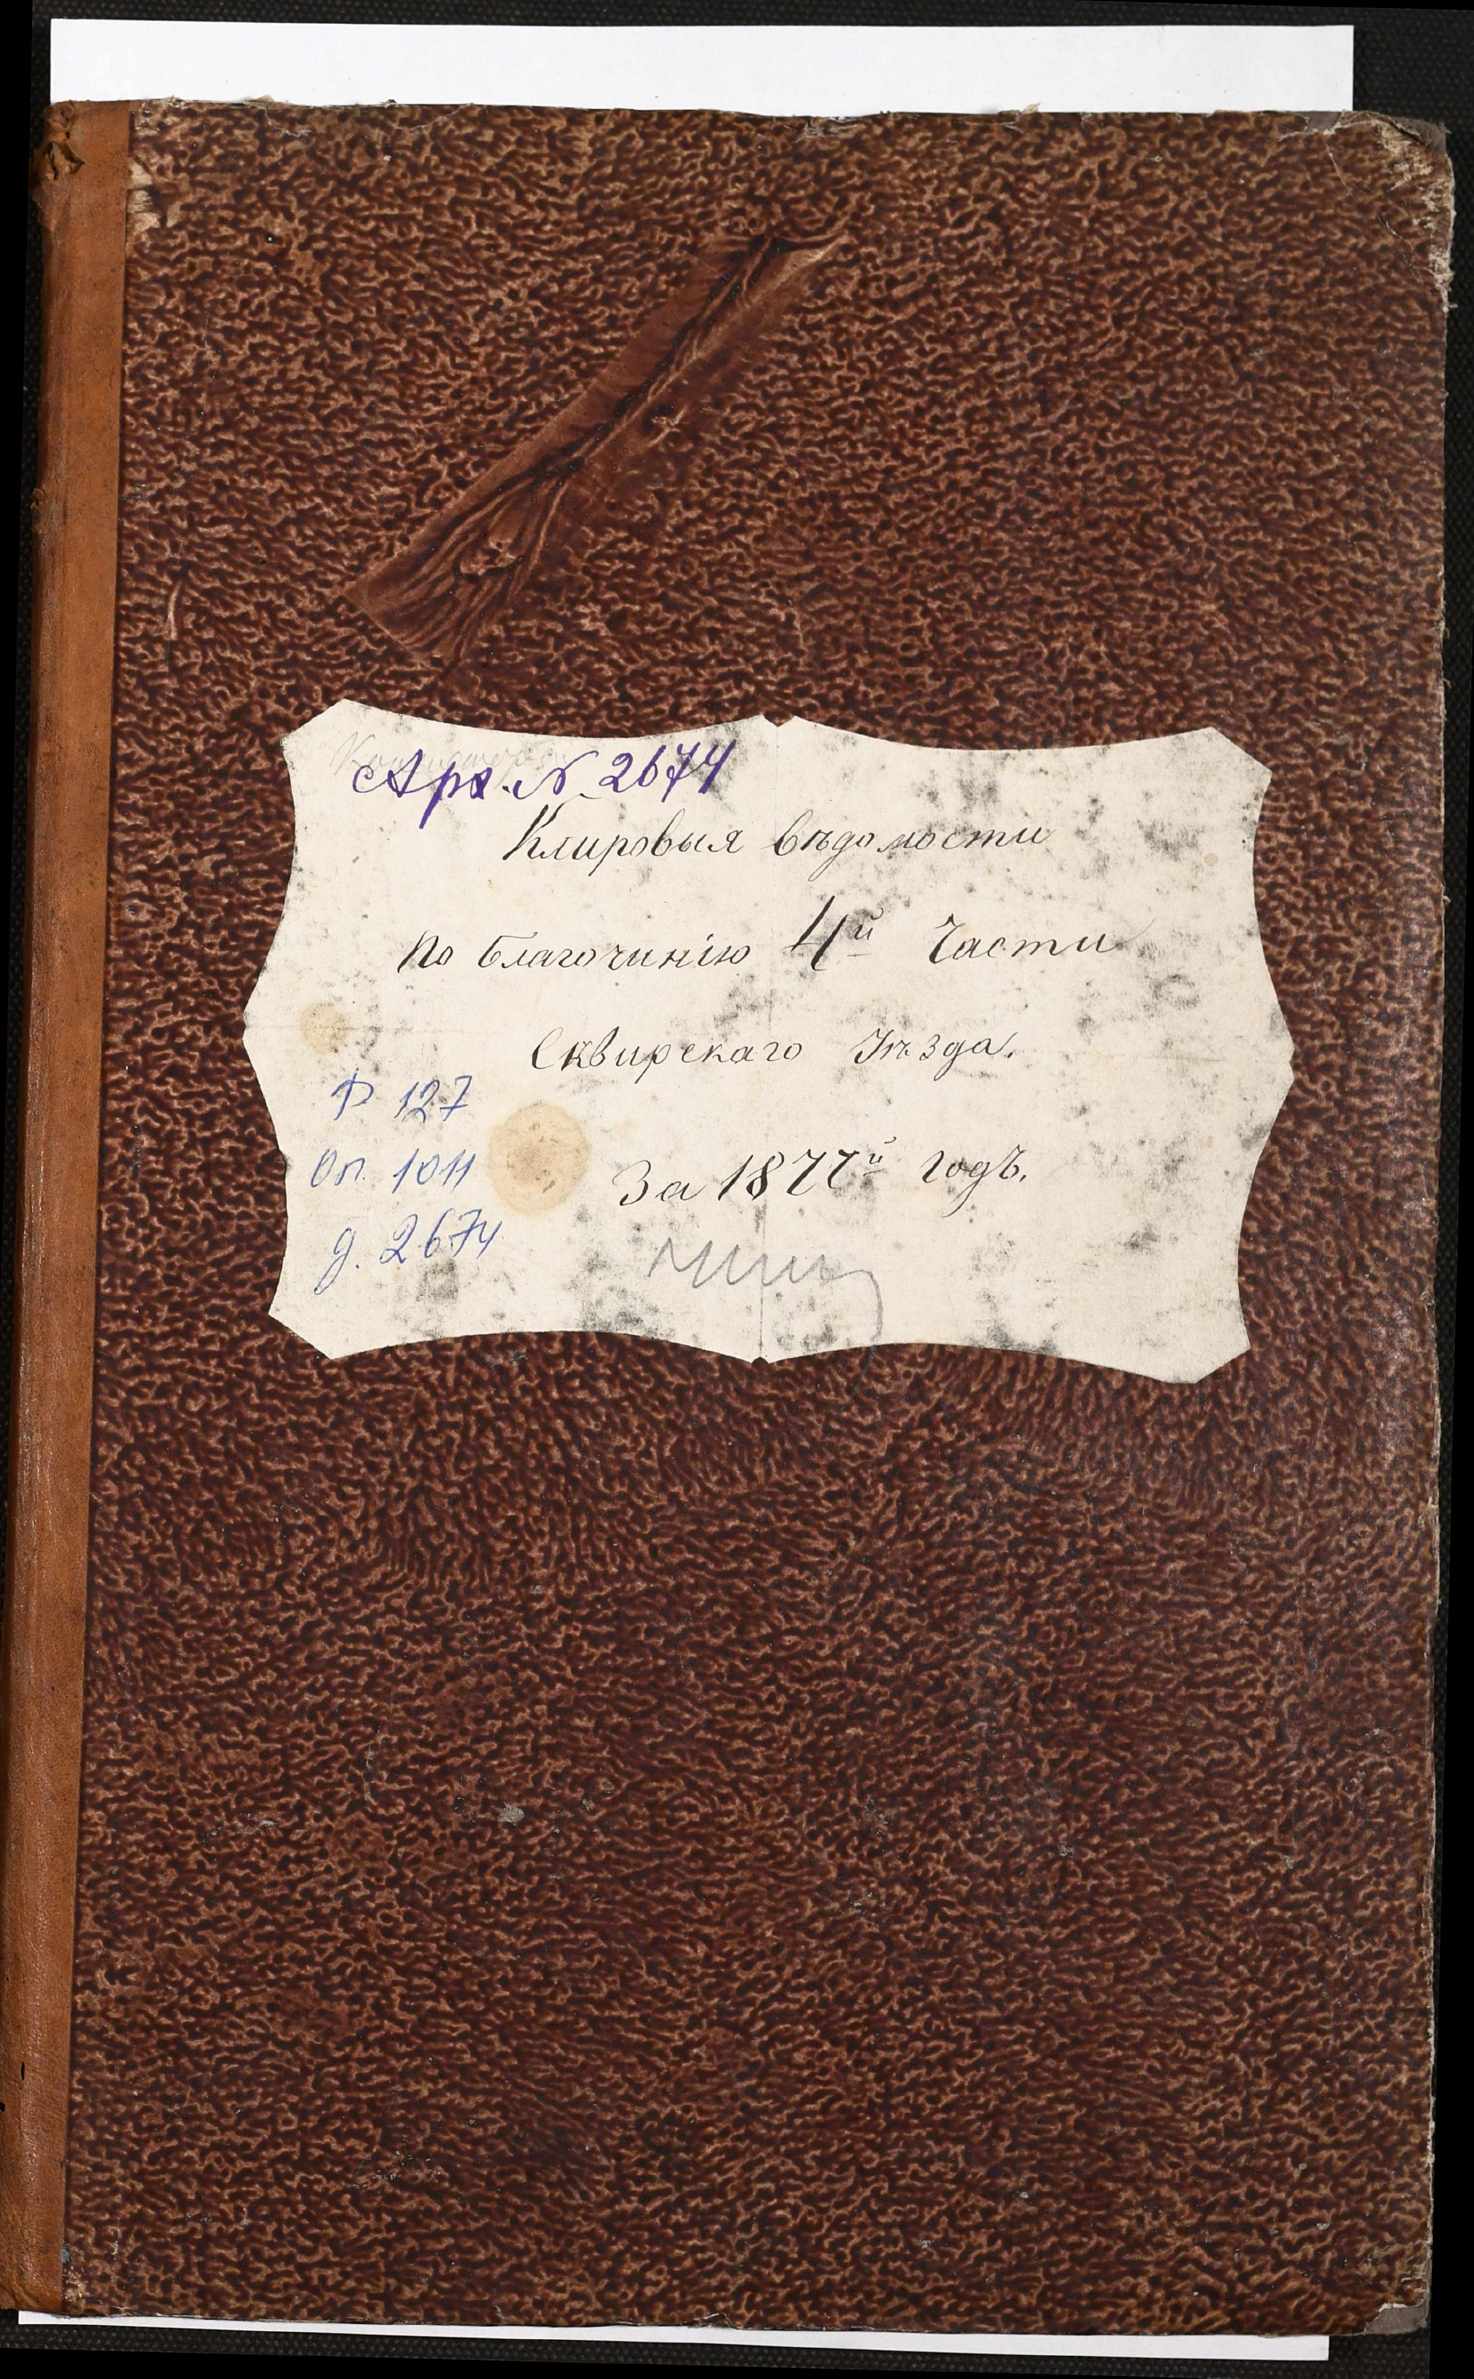 Арх. N 2674
Клировыя вѣдомости
по благочинію 4й Части
Сквирскаго Уѣзда.
Ф 127
За 1877й годъ.
Оп. 1011
д. 2674